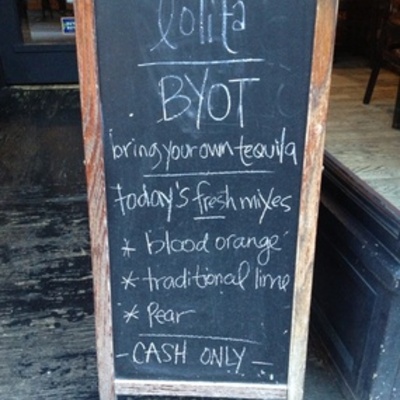 lolita
BYOT
bring your own tequila
today's fresh mixes
* blood orange
* traditional lime
* Pear
- CASH ONLY -